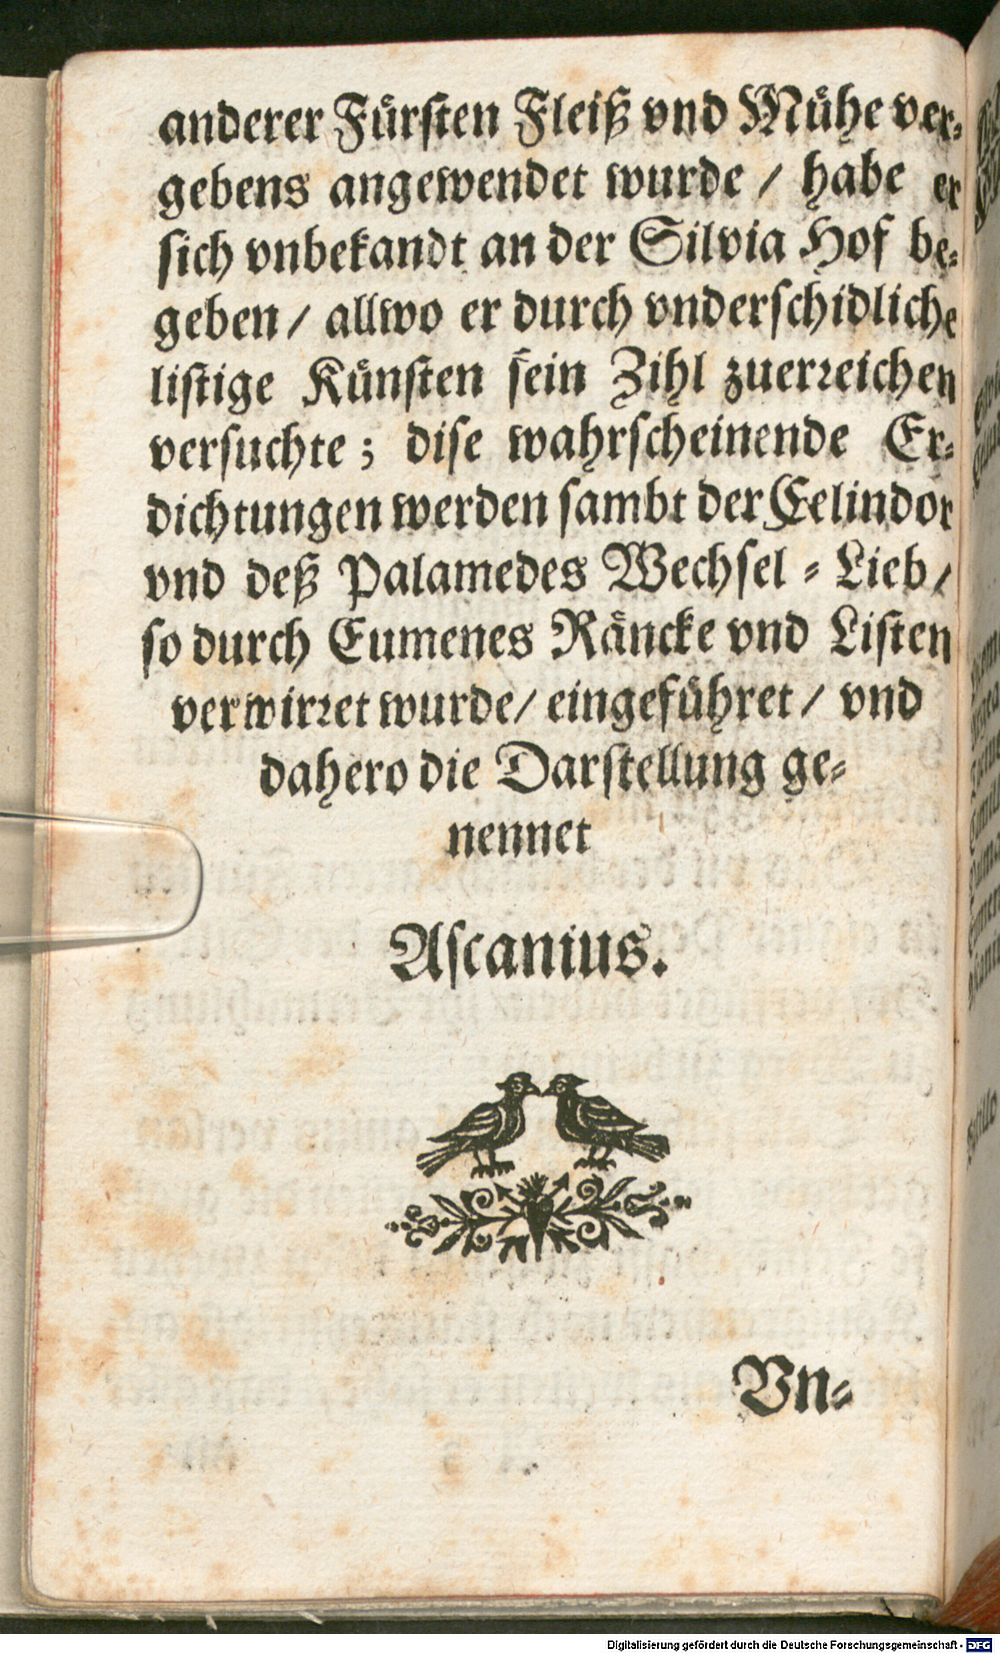 anderer Fürsten Fleiß vnd Mühe ver-
gebens angewendet wurde / habe er
sich vnbekandt an der Silvia Hof be-
geben / allwo er durch vnderschidliche
listige Künsten sein Zihl zuerreichen
versuchte ; dise wahrscheinende Er-
dichtungen werden sambt der Celindor
vnd deß Palamedes Wechsel - Lieb /
so durch Eumenes Räncke vnd Listen
verwirret wurde / eingeführet / vnd
dahero die Darstellung ge-
nennet
Ascanius.
Vn-
Digitalisierung gefördert durch die Deutsche Forschungsgemeinschaft - DFG